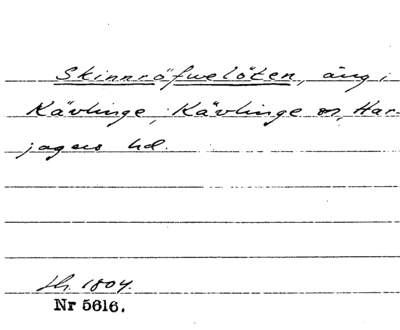 Skinnröfwelöten, äng i
Kävlinge, Kävlinge sn, Har-
jagers hd.
Sk. 1804.
Nr 5616.